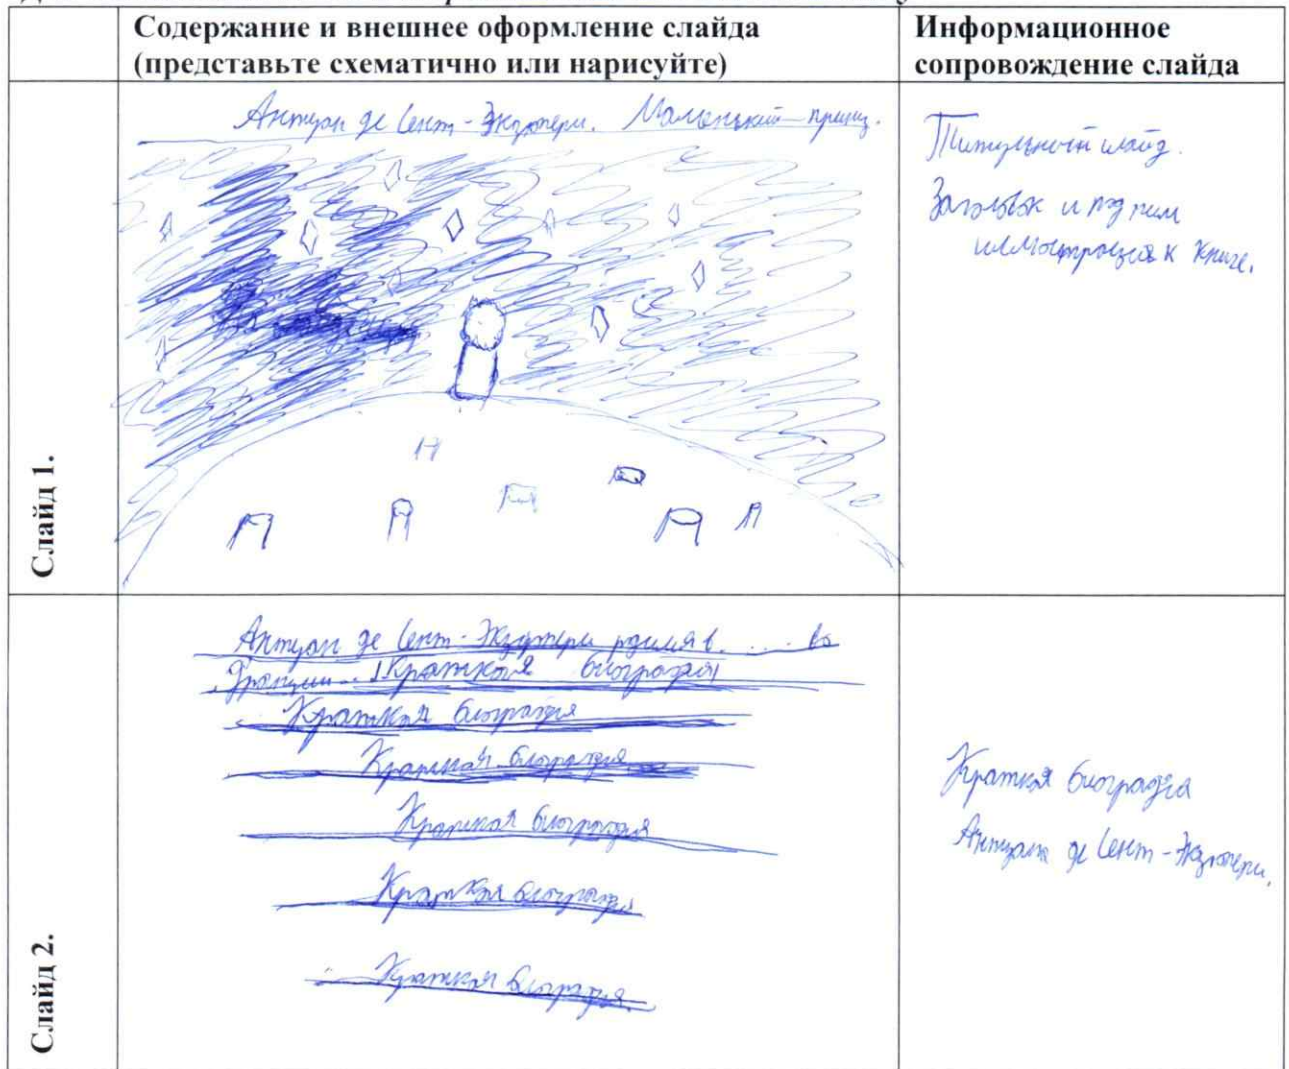 Содержание и внешнее оформление слайда
(представьте схематично или нарисуйте)
Информационное
сопровождение слайда
Слайд 1.
Антуан де Сент-Экзюпери. Маленький принц.
Титульный слайд.
Заголовок и под ним
иллюстрация к книге.
Слайд 2.
Антуан де Сент-Экзюпери родился в . . . . во
Франции... Краткая биография
Краткая биография
Краткая биография
Краткая биография
Краткая биография
Краткая биография.
Краткая биография
Антуана де Сент-Экзюпери.